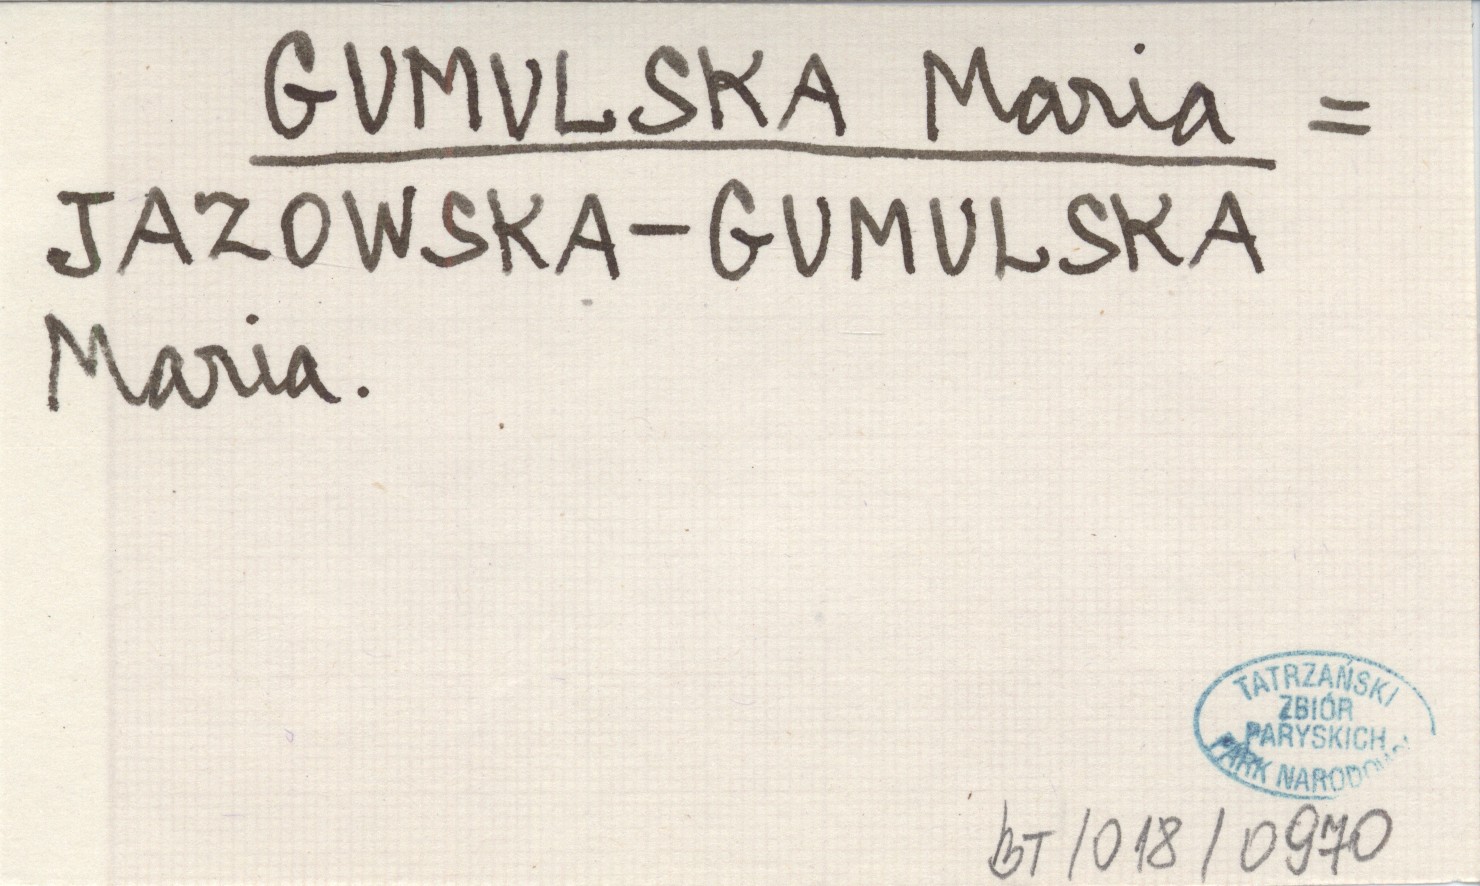 GUMULSKA Maria =
JAZOWSKA-GUMULSKA
Maria.
TATRZAŃSKI
ZBIÓR
PARYSKICH
PARK NARODOWY
BT/018/0970